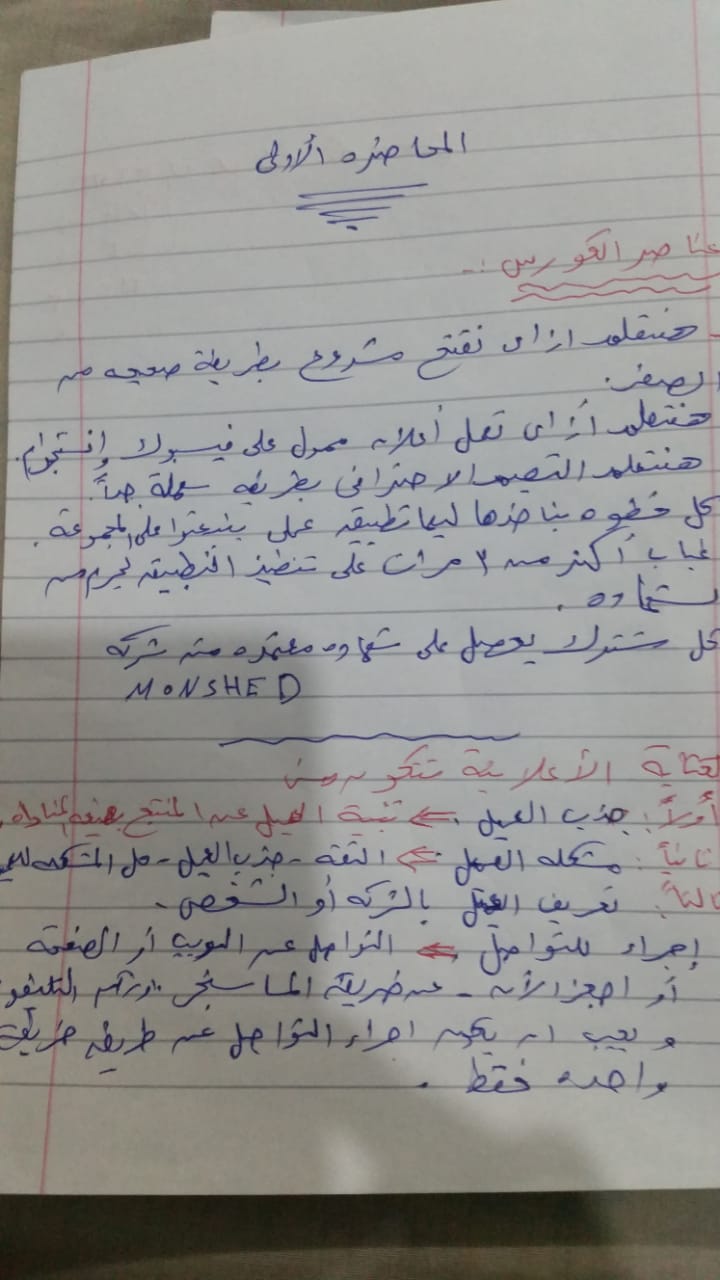 المحاضره الأولى
عناصر الكورس :-
- هنتعلم ازاى نفتح مشروع بطريقة صحيحه من
الصفر.
هنتعلم أزاى تعمل أعلان ممول على فيسبوك وإنستجرام.
هنتعلم التصميم الاحترافى بطريقه سهلة جداً.
كل خطوه بناخذها ليها تطبيق عملى بنبعتوا على المجموعة.
غياب أكثر من ٣ مرات على تنفيذ التطبيق يحرم من
الشهاده.
كل مشترك يحصل على شهاده معتمده من شركه
MONSHED
الكتابة الأعلانية تتكون من
أولاً: جذب العميل ⇐ تنبية العميل عن المنتج بصيغه المناداه.
ثانياً: مشكله العميل ⇐ الثقه - جذب العميل - حل المشكله
ثالثاً: تعريف العميل بالشركه أو الشخص.
إجراء للتواصل ⇐ التواصل عن الويب أو الصفحة
أو احجز الأن - عن طريقة الماسنجر او رقم التليفون
و يجب ان يكون اجراء التواصل عن طريق طريقة
واحده فقط.